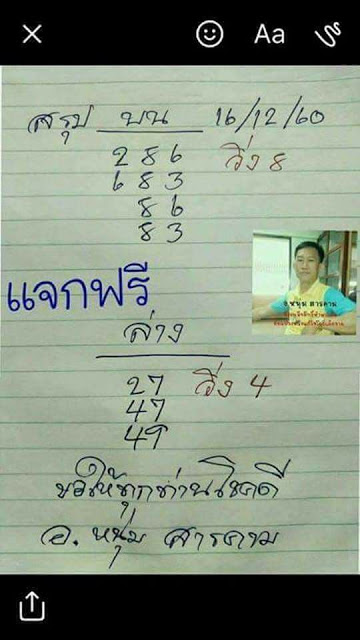 Aa
สรุป บน 16/12/60
286 วิ่ง 8
683
86
83
แจกฟรี
อ.หนุ่ม สารคาม
ล่าง
27 วิ่ง 4
47
49
ขอให้ทุกท่านโชคดี
อ. หนุ่ม สารคาม